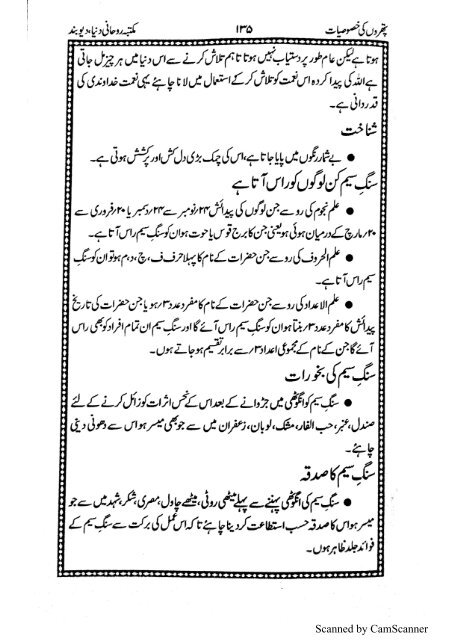 پتھروں کی خصوصیات ۱۳۵ مکتبہ روحانی دنیا، دیوبند
ہوتا ہے لیکن عام طور پر دستیاب نہیں ہوتا تاہم تلاش کرنے سے اس دنیا میں ہر چیز مل جاتی
ہے اللہ کی پیدا کردہ اس نعمت کو تلاش کر کے استعمال میں لانا چاہئے یہی نعمت خداوندی کی
قدردانی ہے۔
شناخت
● بے شمار رنگوں میں پایا جاتا ہے، اس کی چمک بڑی دل کش اور پرکشش ہوتی ہے۔
سنگِ سیم کن لوگوں کو راس آتا ہے
● علم نجوم کی رو سے جن لوگوں کی پیدائش ۲۴؍نومبر سے ۲۴؍دسمبر یا ۲۰؍فروری سے
۲۰؍مارچ کے درمیان ہوئی ہو یعنی جن کا برج قوس یا حوت ہو ان کو سنگِ سیم راس آتا ہے۔
● علم الحروف کی رو سے جن حضرات کے نام کا پہلا حرف ف، چ، د، م ہو تو ان کو سنگِ
سیم راس آتا ہے۔
● علم الاعداد کی رو سے جن حضرات کے نام کا مفرد عدد ۳؍ہو یا جن حضرات کی تاریخ
پیدائش کا مفرد عدد ۳؍بنتا ہو ان کو سنگِ سیم راس آئے گا اور سنگِ سیم ان تمام افراد کو بھی راس
آئے گا جن کے نام کے مجموعی اعداد ۳؍سے برابر تقسیم ہو جاتے ہوں۔
سنگِ سیم کی بخورات
● سنگِ سیم کو انگوٹھی میں جڑوانے کے بعد اس کے نحس اثرات کو زائل کرنے کے لئے
صندل، عنبر، حب الفار، مشک، لوبان، زعفران میں سے جو بھی میسر ہو اس سے دھونی دینی
چاہئے۔
سنگِ سیم کا صدقہ
● سنگِ سیم کی انگوٹھی پہننے سے پہلے میٹھی روٹی، میٹھے چاول، مصری، شکر، شہد میں سے جو
میسر ہو اس کا صدقہ حسب استطاعت کر دینا چاہئے تاکہ اس عمل کی برکت سے سنگِ سیم کے
فوائد جلد ظاہر ہوں۔
Scanned by CamScanner